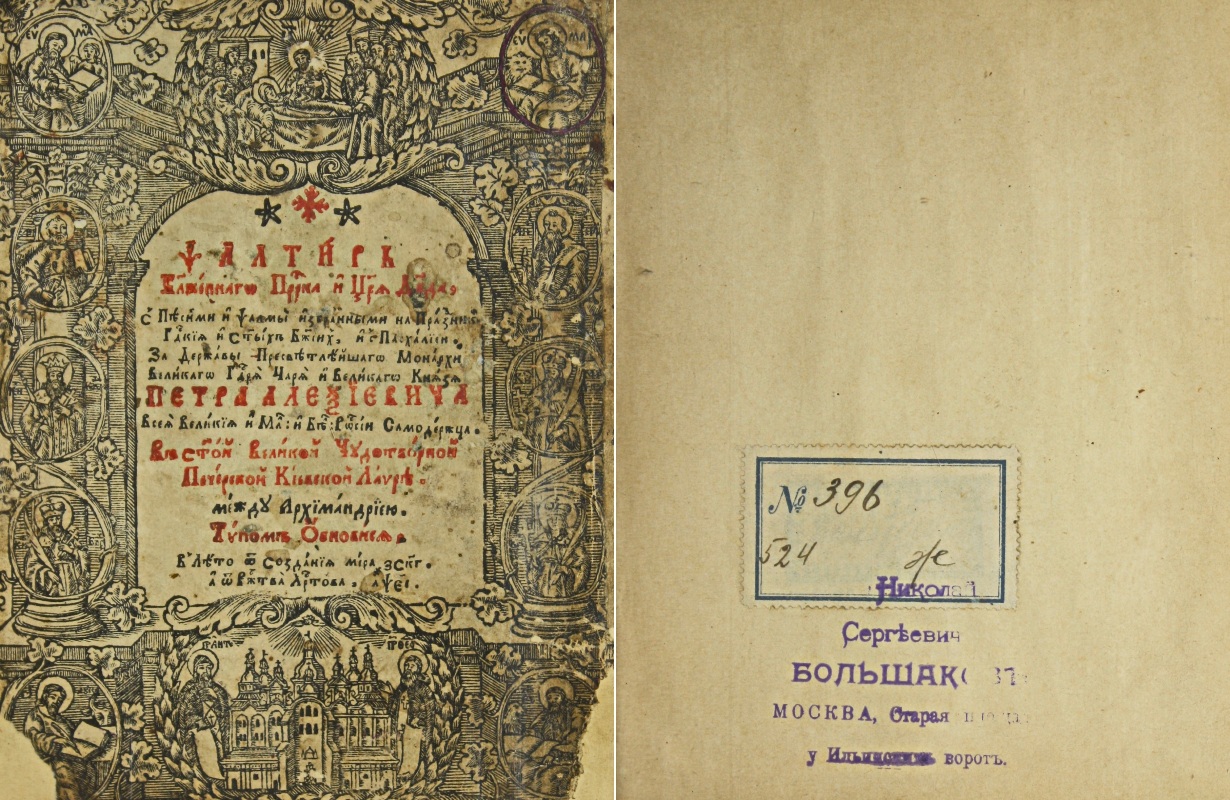 ЕѴ МА
ЕѴ МА
ѰАЛТИ́РЬ
Бл҃же́ннагѡ Прⷪ҇рка и҆ Цр҃ѧ Дв҃да,
с̾ Пѣ́сньми и҆ Ѱалмы̀ и҆збра́нными на Пра́здники
Гдⷭ҇кїѧ и҆ ст҃ы́хъ Бж҃їихъ, и҆ с̾ Пасха́лїею.
За Держа́вы Пресвѣтлѣ́йшагѡ Мона́рхи
Вели́кагѡ Гдⷭ҇рѧ Царѧ̀ и҆ Вели́кагѡ Кнѧ́зѧ
ПЕТРА АЛЕѮІЕВИЧА
Всеѧ̀ Вели́кїѧ и҆ Ма: и҆ Бѣ: Рѡсі́и Самоде́ржца.
Въ ст҃о́й Вели́кой Чꙋдотво́рной
Пече́рской Кі́евской Ла́ѵрѣ.
ме́ждꙋ А҆рхїмандрі́ею.
Тѵ́помъ Ѡ҆бнови́сѧ.
В̾ Лѣ́то ѿ созда́нїѧ ми́ра,
а҆ ѿ Ржⷭ҇тва̀ Хрⷭ҇то́ва,
№ 396
524
Николай
Сергѣевич
БОЛЬШАК
МОСКВА, Старая
у Ильинскихъ воротъ.